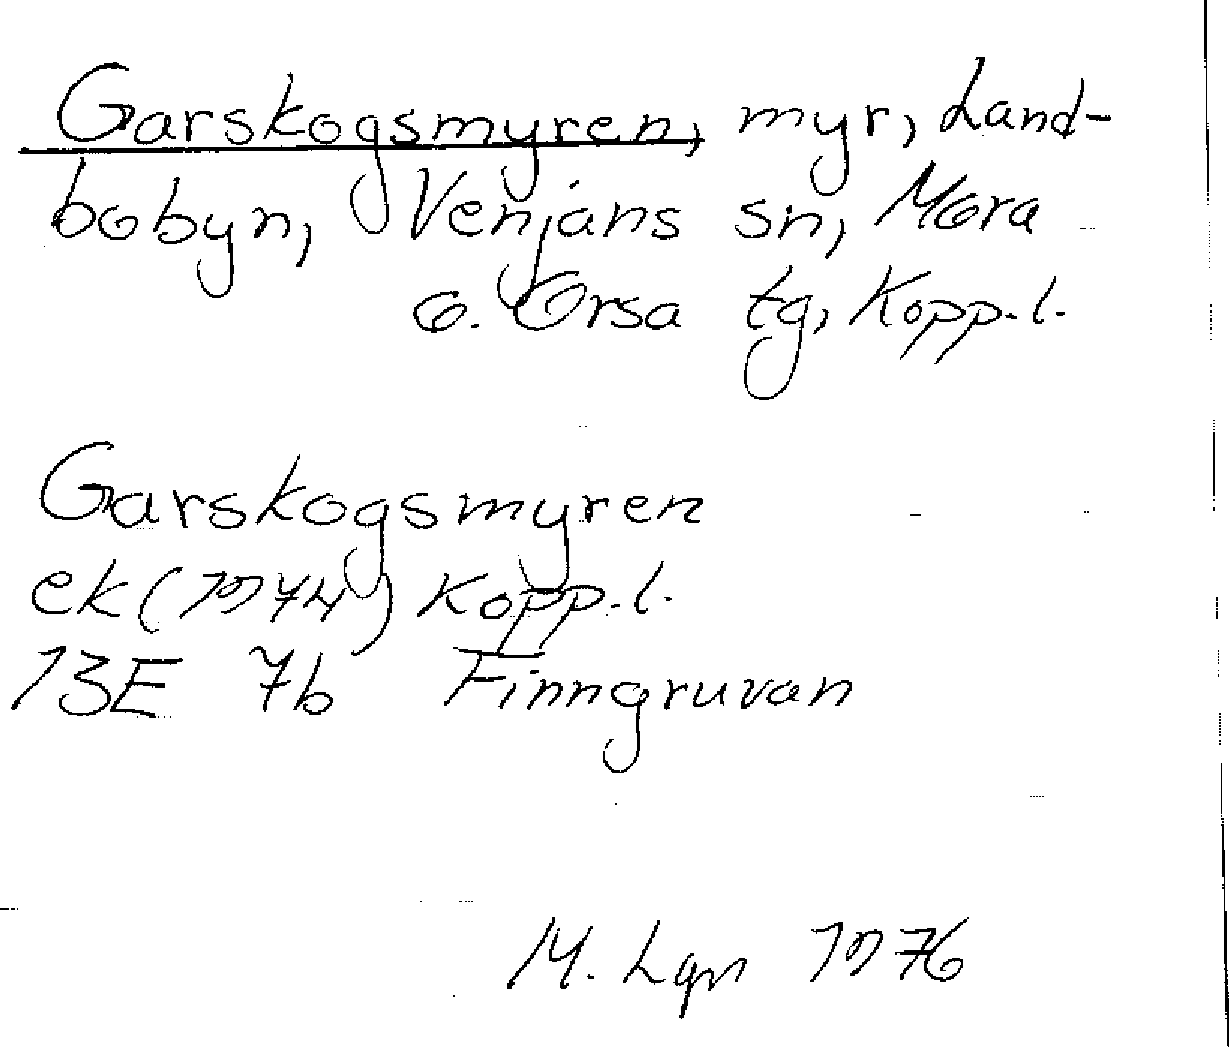 Garskogsmyren, myr, Land-
bobyn, Venjans sn, Mora
o. Orsa tg, Kopp. l.
Garskogsmyren
ek (1974) Kopp. l.
13E 7b Finngruvan
M. Lgn 1976